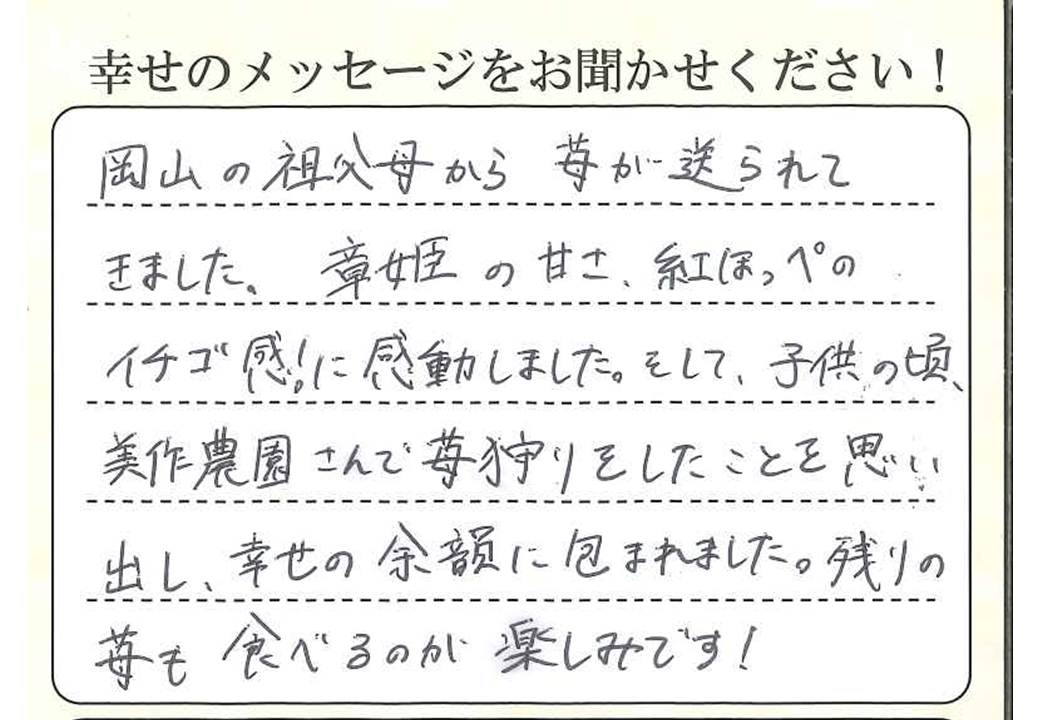 幸せのメッセージをお聞かせください！
岡山の祖父母から 苺が送られて
きました。 章姫の甘さ、紅ほっぺの
イチゴ感！に感動しました。そして、子供の頃、
美作農園さんで苺狩りをしたことを思い
出し、幸せの余韻に包まれました。残りの
苺も食べるのが楽しみです！